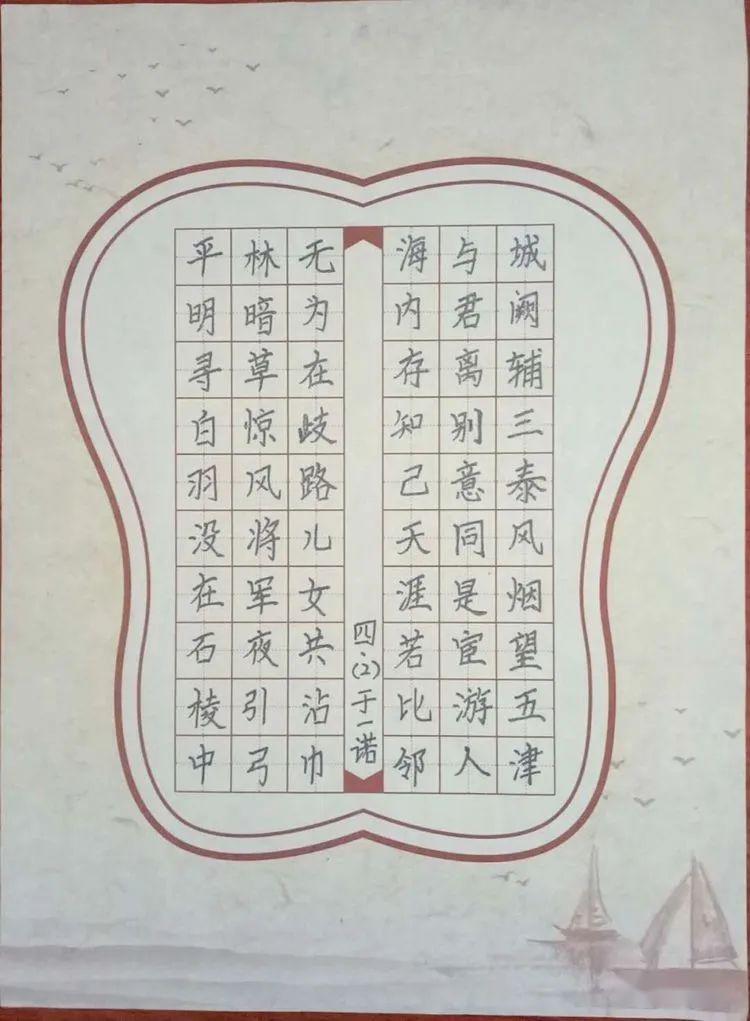 城阙辅三泰风烟望五津
与君离别意同是宦游人
海内存知己天涯若比邻
四·(2)于一诺
无为在歧路儿女共沾巾
林暗草惊风将军夜引弓
平明寻白羽没在石棱中